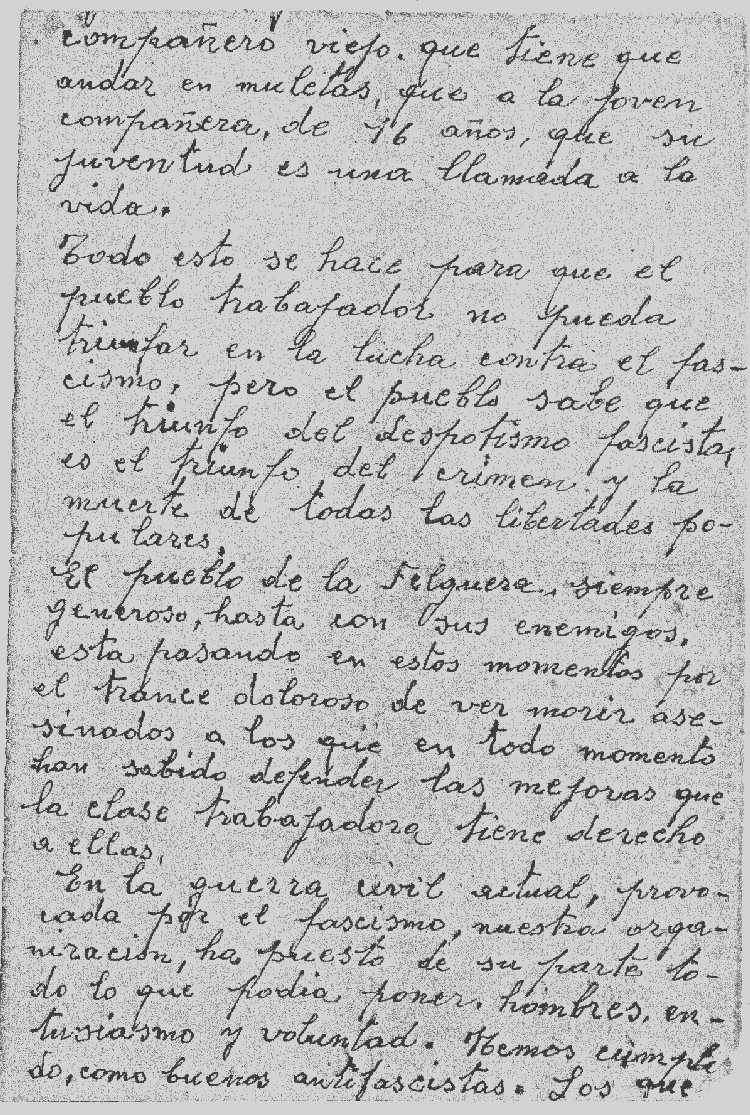 compañero viejo. que tiene que
andar en muletas, que a la joven
compañera, de 16 años, que su
juventud es una llamada a la
vida.
Todo esto se hace para que el
pueblo trabajador no pueda
triunfar en la lucha contra el fas-
cismo, pero el pueblo sabe que
el triunfo del despotismo fascista,
es el triunfo del crimen y la
muerte de todas las libertades po-
pulares.
El pueblo de la Felguera, siempre
generoso, hasta con sus enemigos,
esta pasando en estos momentos por
el trance doloroso de ver morir ase-
sinados a los que en todo momento
han sabido defender las mejoras que
la clase trabajadora tiene derecho
a ellas.
En la guerra civil actual, provo-
cada por el fascismo, nuestra orga-
nización, ha puesto de su parte to-
do lo que podia poner. hombres, en-
tusiasmo y voluntad. Hemos cumpli
do, como buenos antifascistas. Los que